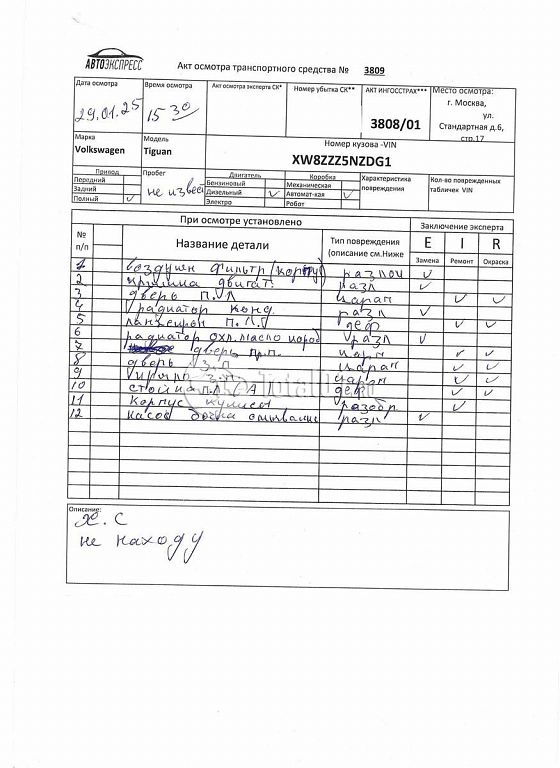 АВТОЭКСПРЕСС
Акт осмотра транспортного средства № 3809
Дата осмотра
29.01.25
Время осмотра
15 30
Акт осмотра эксперта СК*
Номер убытка СК**
АКТ ИНГОССТРАХ***
3808/01
Место осмотра:
г. Москва,
ул.
Стандартная д.6,
стр.17
Марка
Volkswagen
Модель
Tiguan
Номер кузова -VIN
XW8ZZZ5NZDG1
Привод
Передний
Задний
Полный ✓
Пробег
не извес
Двигатель
Бензиновый
Дизельный ✓
Электро
Коробка
Механическая
Автомат-кая ✓
Робот
Характеристика
повреждения
Кол-во поврежденных
табличек VIN
При осмотре установлено
Заключение эксперта
№
п/п
Название детали
Тип повреждения
(описание см.Ниже
E I R
Замена Ремонт Окраска
1 воздушн фильтр (корпус) разлом ✓
2 крышка двигат. разл ✓
3 дверь п.л царап ✓ ✓
4 радиатор конд. разл ✓
5 п.л. деф ✓ ✓
6 радиатор охл. масло короб разл ✓
7 дверь пр.п. цара ✓ ✓
8 дверь з.п царап ✓ ✓
9 з.п. царап ✓ ✓
10 стойка п.л А деф ✓ ✓
11 корпус кулисы разобр ✓
12 насос бочка омывание разл ✓
Описание:
Х. С
не находу